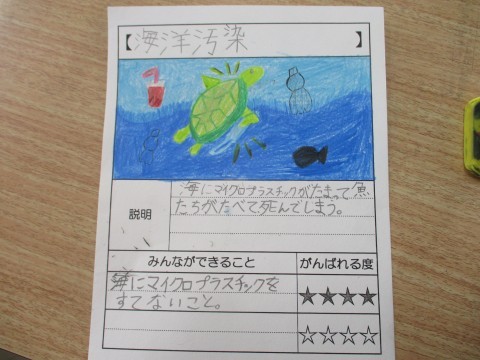 【海洋汚染】
説明
海にマイクロプラスチックがたまって魚
たちがたべて死んでしまう。
みんなができること
がんばれる度
海にマイクロプラスチックを
すてないこと。
★★★★
☆☆☆☆